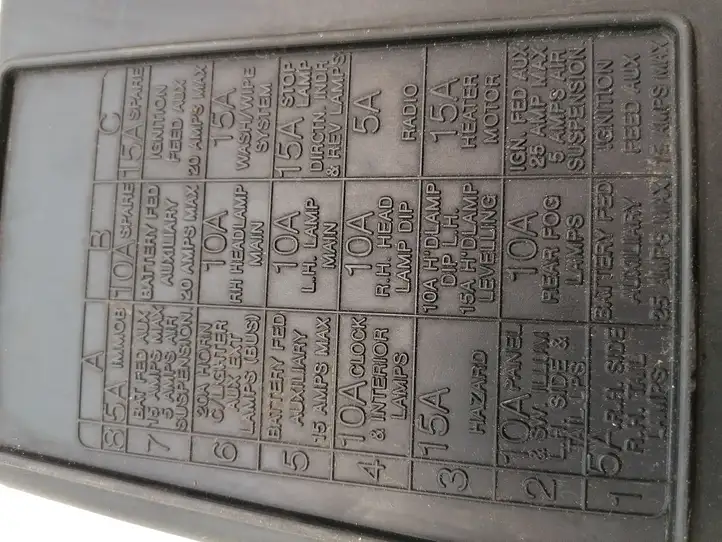 A
B
C
8
5A IMMOB
10A SPARE
15A SPARE
7
BAT FED AUX
15 AMPS MAX
5 AMPS AIR
SUSPENSION
BATTERY FED
AUXILIARY
20 AMPS MAX
IGNITION
FEED AUX
20 AMPS MAX
6
20A HORN
C/LIGHTER
AUX EXT
LAMPS (BUS)
10A
RH HEADLAMP
MAIN
15A
WASH/WIPE
SYSTEM
5
BATTERY FED
AUXILIARY
15 AMPS MAX
10A
L.H. LAMP
MAIN
15A STOP
LAMP
DIRCTN. INDR
& REV LAMPS
4
10A CLOCK
& INTERIOR
LAMPS
10A
R.H. HEAD
LAMP DIP
5A
RADIO
3
15A
HAZARD
10A H'DLAMP
DIP L.H.
15A H'DLAMP
LEVELLING
15A
HEATER
MOTOR
2
10A PANEL
& SW. ILLUM
L.H. SIDE &
TAIL LPS
10A
REAR FOG
LAMPS
IGN. FED AUX
25 AMP MAX
5 AMPS AIR
SUSPENSION
1
5A R.H. SIDE
R.H. TAIL
LAMPS
BATTERY FED
AUXILIARY
25 AMPS MAX
IGNITION
FEED AUX
15 AMPS MAX